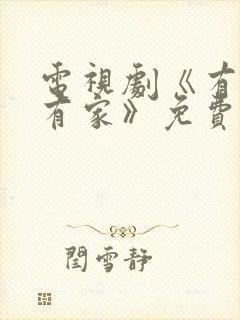 電視劇《有
有家》免費
閆雪靜